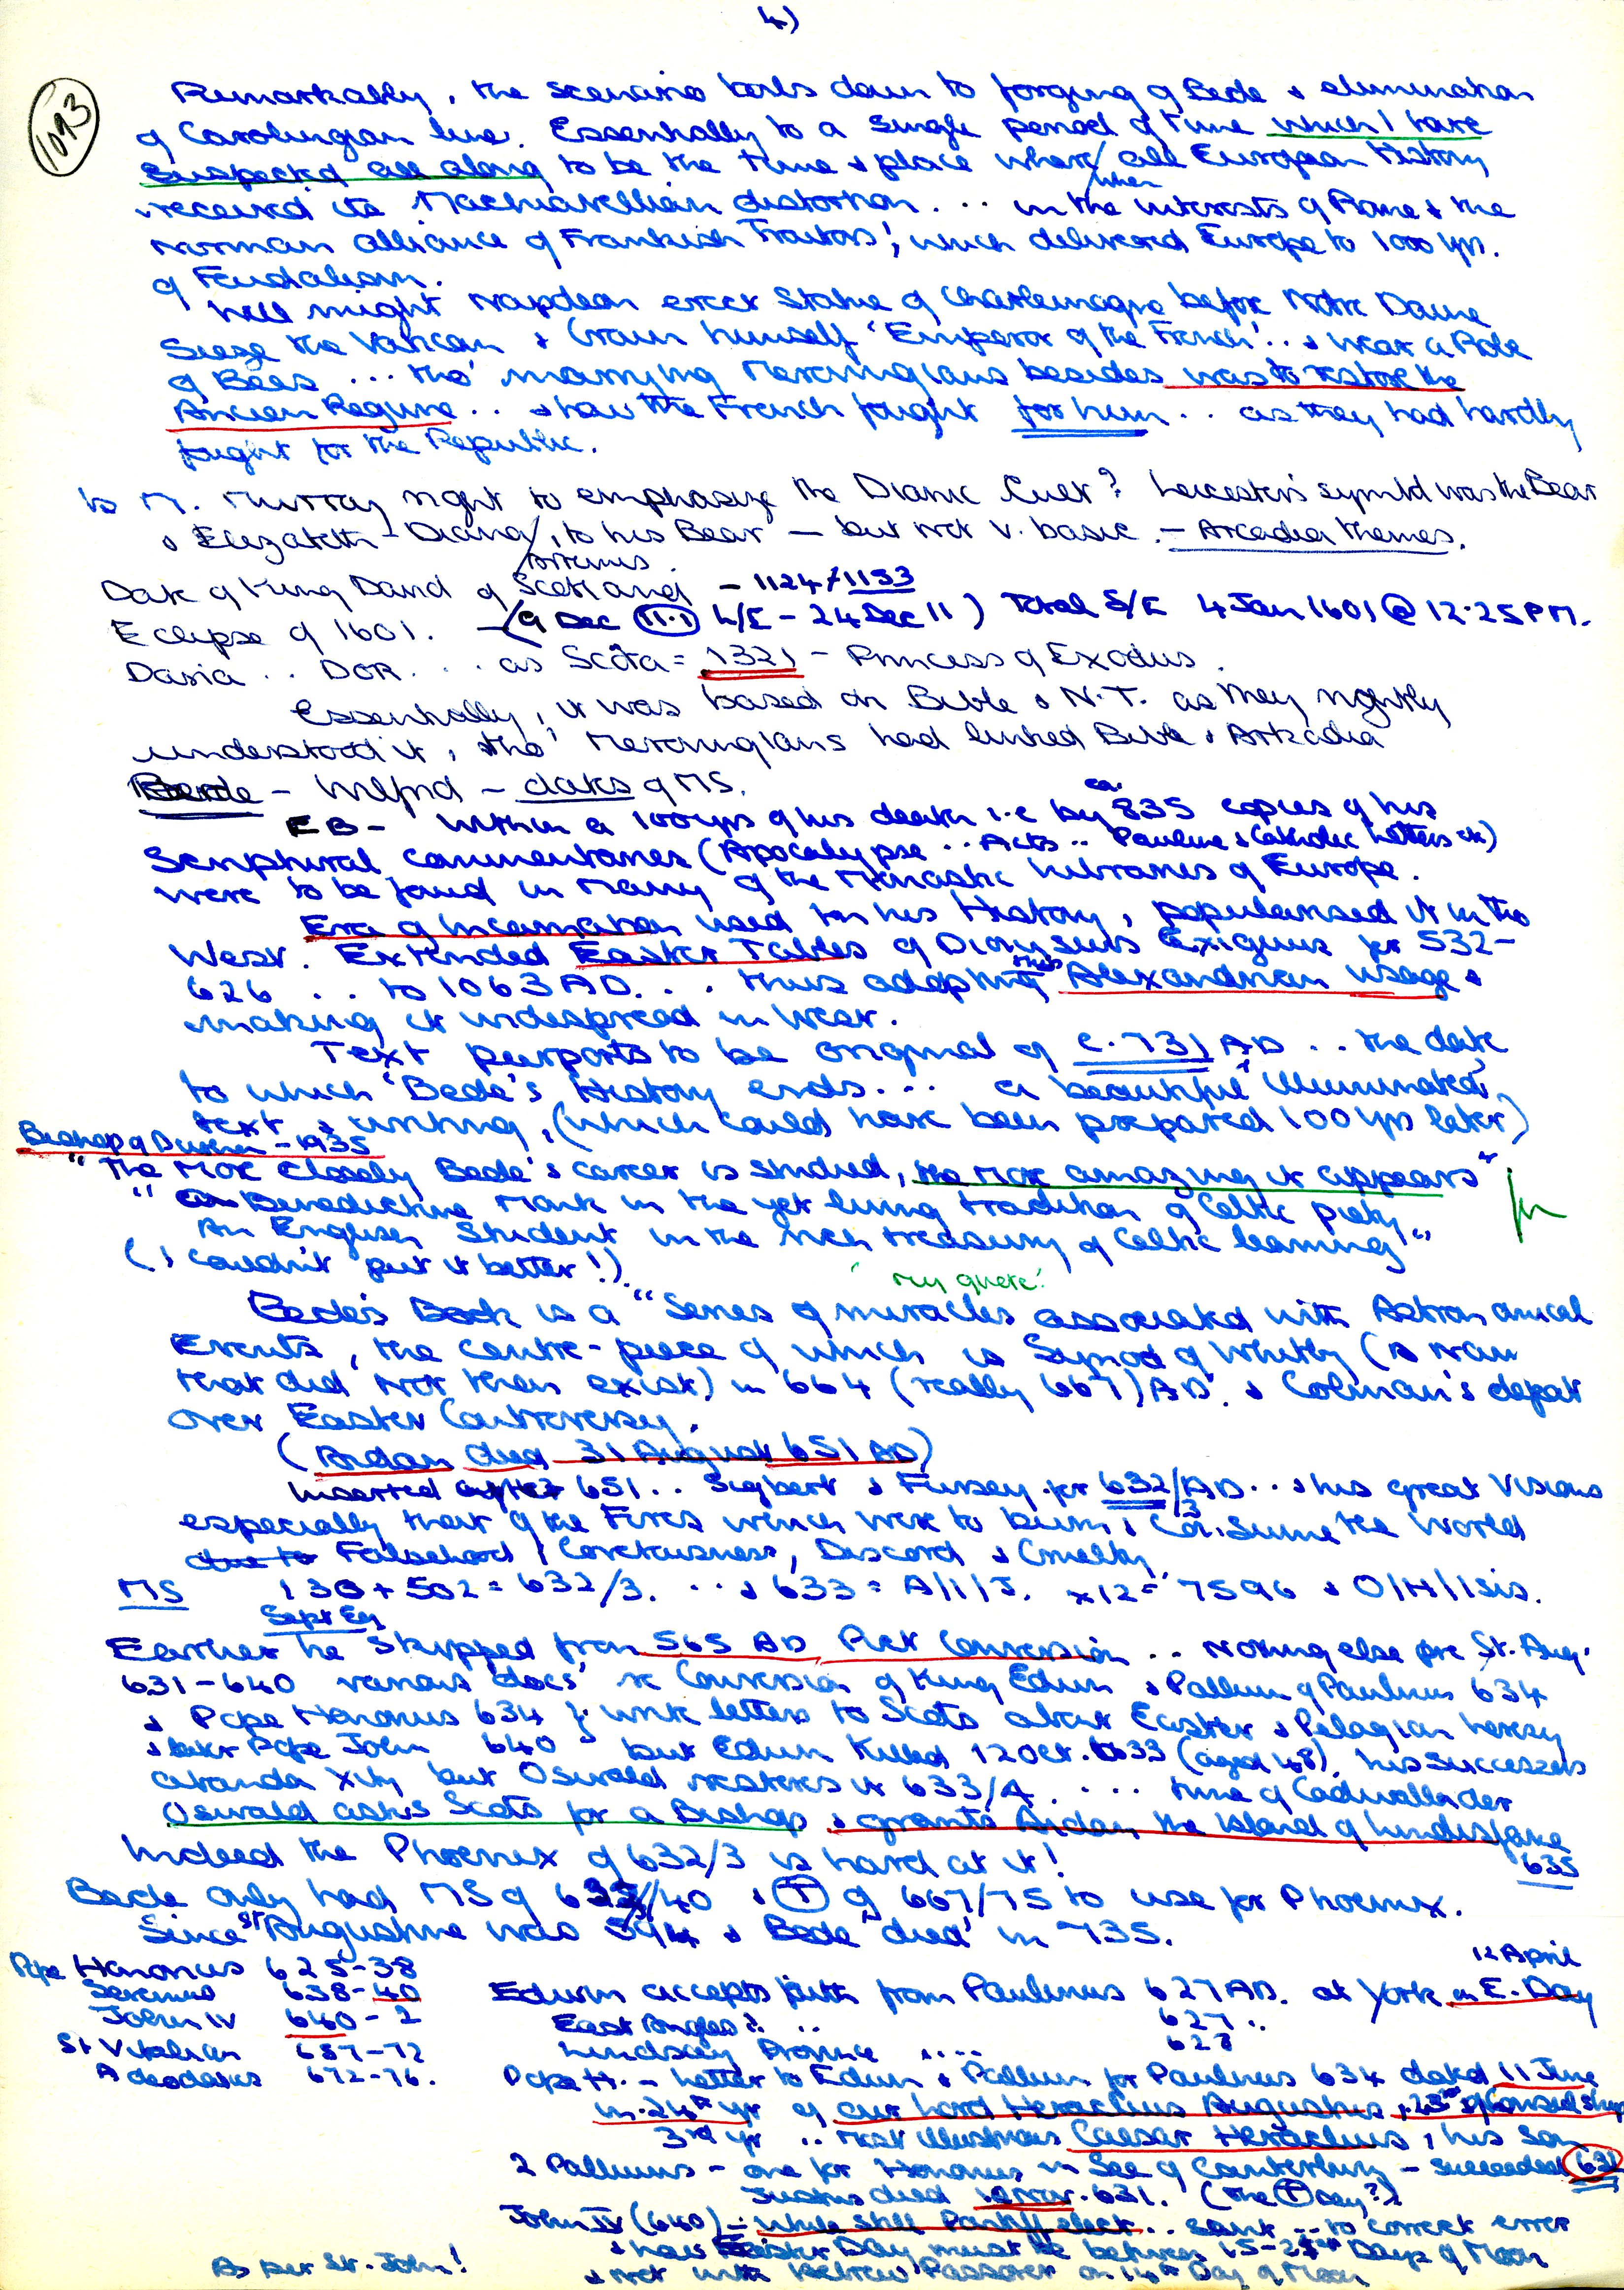 4)
1093
Remarkably, the scenario boils down to forging of Bede & elimination
of Carolingian line. Essentially to a single period of time which I have
suspected all along to be the time & place where/when all European History
received its Machiavellian distortion... in the interests of Rome & the
Norman alliance of Frankish Traitors', which delivered Europe to 1000 yrs.
of Feudalism.
Well might Napoleon erect Statue of Charlemagne before Notre Dame
Siege the Vatican & Crown himself 'Emperor of the French'.. & wear a Robe
of Bees... tho' marrying Merovingians besides was to restore the
Ancien Regime.. & how the French fought for him.. as they had hardly
fought for the Republic.
Is M. Murray right to emphasize the Dianic Cult? Leicester's symbol was the Bear
& Elizabeth - Diana/Artemis, to his Bear — but not v. basic. - Arcadia themes.
Date of King David of Scotland - 1124/1153
Eclipse of 1601. - (9 Dec 11.1 L/E - 24 Dec 11) Total S/E 4 Jan 1601 @ 12.25 PM.
Daria.. DOR... as Scota = 1321 - Princess of Exodus.
Essentially, it was based on Bible & N.T. as they rightly
understood it, tho' Merovingians had linked Bible & Arkadia
Bede - Wilfrid - dates of MS.
EB - Within a 100 yrs of his death i.e by ca. 835 copies of his
Scriptural commentaries (Apocalypse.. Acts.. Pauline & Catholic Letters etc)
were to be found in many of the Monastic Libraries of Europe.
Era of Incarnation used in his History, popularised it in the
West. Extended Easter Tables of Dionysius Exiguus for 532-
626... to 1063 AD... thus adopting this Alexandrian usage &
making it widespread in West.
Text purports to be original of c.731 AD.. the date
to which 'Bede's History ends... a beautiful 'illuminated'
text & writing, (which could have been prepared 100 yrs later)
Bishop of Durham - 1935
"The more closely Bede's career is studied, the more amazing it appears"
" Benedictine Monk in the yet living tradition of Celtic piety"
An English Student in the rich treasury of Celtic learning"
(I couldn't put it better!).
'my quote!
Bede's Book is a "Series of miracles associated with Astronomical
Events, the centre-piece of which is Synod of Whitby (a Nam
that did not then exist) in 664 (really 667) AD. & Colman's defeat
over Easter Controversy.
(Aidan died 31 August 651 AD)
Inserted after 651.. Sigbert & Fursey for 632/3 AD... & his great Visions
especially that of the Fires which were to burn & consume the World
due to Falsehood, Covetousness, Discord & Cruelty
MS 130 + 502 = 632/3. ..& 633 = A/I/J. x12 = 7596 & O/H/Isis.
Sept Eq
Earlier he skipped from 565 AD Pict Conversion.. nothing else pre St. Aug.
631-640 various 'docs' re Conversion of King Edwin & Pallium of Paulinus 634
& Pope Honorius 634 } write letters to Scots about Easter & Pelagian heresy
& later Pope John 640 but Edwin killed 12 Oct. 633 (aged 48), his successors
abandon Xity but Oswald restores it 633/4.... time of Cadwallader
Oswald asks Scots for a Bishop & grants Aidan the Island of Lindisfarne
635
Indeed the Phoenix of 632/3 is hard at it!
Bede only had MS of 633/40 & T of 667/75 to use for Phoenix.
Since St Augustine was 594 & Bede 'died' in 735.
Pope Honorius 625-38
Severinus 638-40
John IV 640-2
St Vitalian 657-72
Adeodatus 672-76.
12 April
Edwin accepts faith from Paulinus 627 AD. at York on E. Day
East Angles? .. 627..
Lindsey Province .... 628
Pope H. - Letter to Edwin & Pallium for Paulinus 634 dated 11 June
in 24th yr of our Lord Heraclius Augustus, 23rd of Consulship
3rd yr .. most illustrious Caesar Heraclius, his son
2 Palliums - one for Honorius in See of Canterbury - succeeded 631
Justus died 10 Nov. 631. (the T Day?)
John IV (640) - while still Pontiff elect.. sent .. to correct error
& how Easter Day must be between 15-21st Days of Moon
& not with Hebrew Passover on 14th Day of Moon
As per St. John!